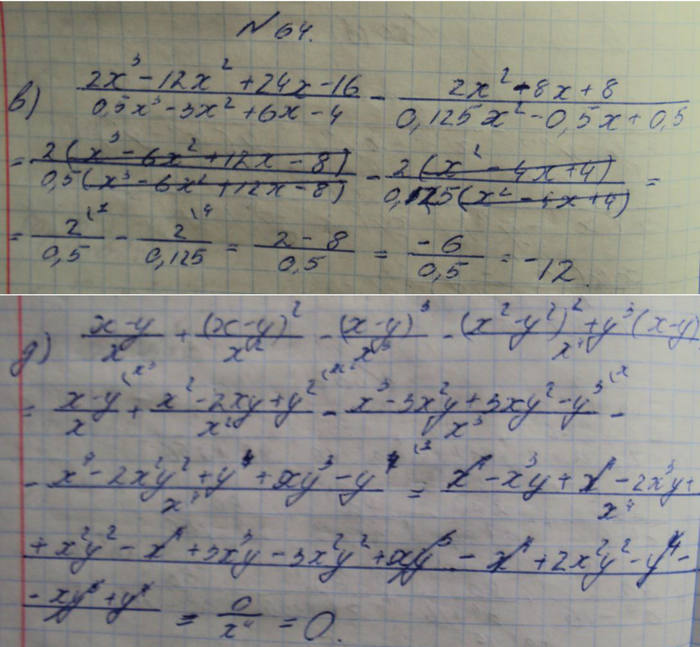 № 64.
в) (2x³ - 12x² + 24x - 16)/(0,5x³ - 3x² + 6x - 4) - (2x² - 8x + 8)/(0,125x² - 0,5x + 0,5)
= 2(x³ - 6x² + 12x - 8)/0,5(x³ - 6x² + 12x - 8) - 2(x² - 4x + 4)/0,125(x² - 4x + 4) =
= 2/0,5 - 2/0,125 = (2 - 8)/0,5 = -6/0,5 = -12.
д) (x-y)/x + (x-y)²/x² - (x-y)³/x³ - ((x²-y²)² + y³(x-y))/x⁴
= (x-y)/x + (x² - 2xy + y²)/x² - (x³ - 3x²y + 3xy² - y³)/x³ -
- (x⁴ - 2x²y² + y⁴ + xy³ - y⁴)/x⁴ = x⁴ - x³y + x⁴ - 2x³y + / x⁴
+ x²y² - x⁴ + 3x³y - 3x²y² + xy³ - x⁴ + 2x²y² - y⁴ -
- xy³ + y⁴ = 0/x⁴ = 0.